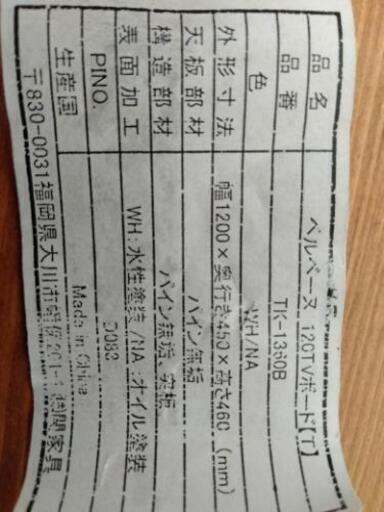 品名 ベルベーヌ 120TVボード【T】
品番 TK-1360B
色 WH/NA
外形寸法 幅1200×奥行き450×高さ460.(mm)
天板部材 パイン無垢
構造部材 パイン無垢、突板
表面加工 WH:水性塗装/NA:オイル塗装
PINO. D083
生産国 Made in China
〒830-0031福岡県大川市 関家具